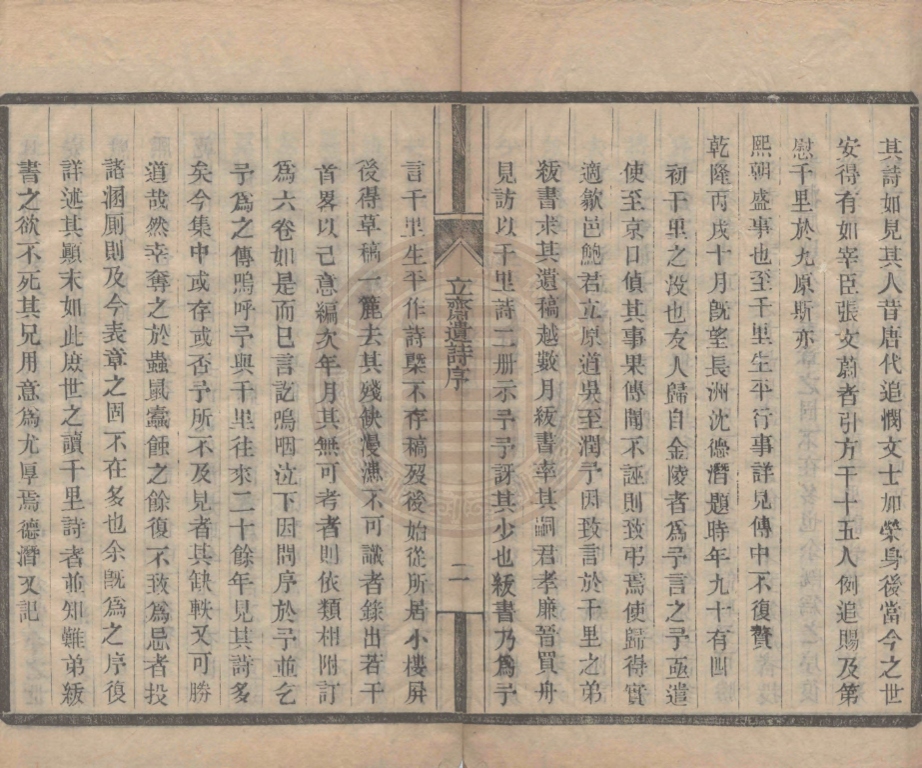 其詩如見其人昔唐代追憫文士加榮身後當今之世
安得有如宰臣張文蔚者引方干十五人例追賜及第
慰千里於九原斯亦
熙朝盛事也至千里生平行事詳見傳中不復贅
乾隆丙戌十月旣望長洲沈德潛題時年九十有四
初千里之没也友人歸自金陵者爲予言之予亟遣
使至京口偵其事果傳聞不誣則致弔焉使歸得實
適歙邑鮑君立原道吳至潤予因致言於千里之弟
紱書求其遺稿越數月紱書率其嗣君孝廉晉買舟
見訪以千里詩二册示予予訝其少也紱書乃爲予
立齋遺詩序
二
言千里生平作詩槩不存稿歿後始從所居小樓屏
後得草稿一簏去其殘缺漫漶不可識者錄出若干
首畧以己意編次年月其無可考者則依類相附訂
爲六卷如是而已言訖嗚咽泣下因問序於予並乞
予爲之傳嗚呼予與千里往來二十餘年見其詩多
矣今集中或存或否予所不及見者其缺軼又可勝
道哉然幸奪之於蟲鼠蠹蝕之餘復不致爲忌者投
諸溷厠則及今表章之固不在多也余旣爲之序復
詳述其顚末如此庶世之讀千里詩者並知難弟紱
書之欲不死其兄用意爲尤厚焉德潛又記